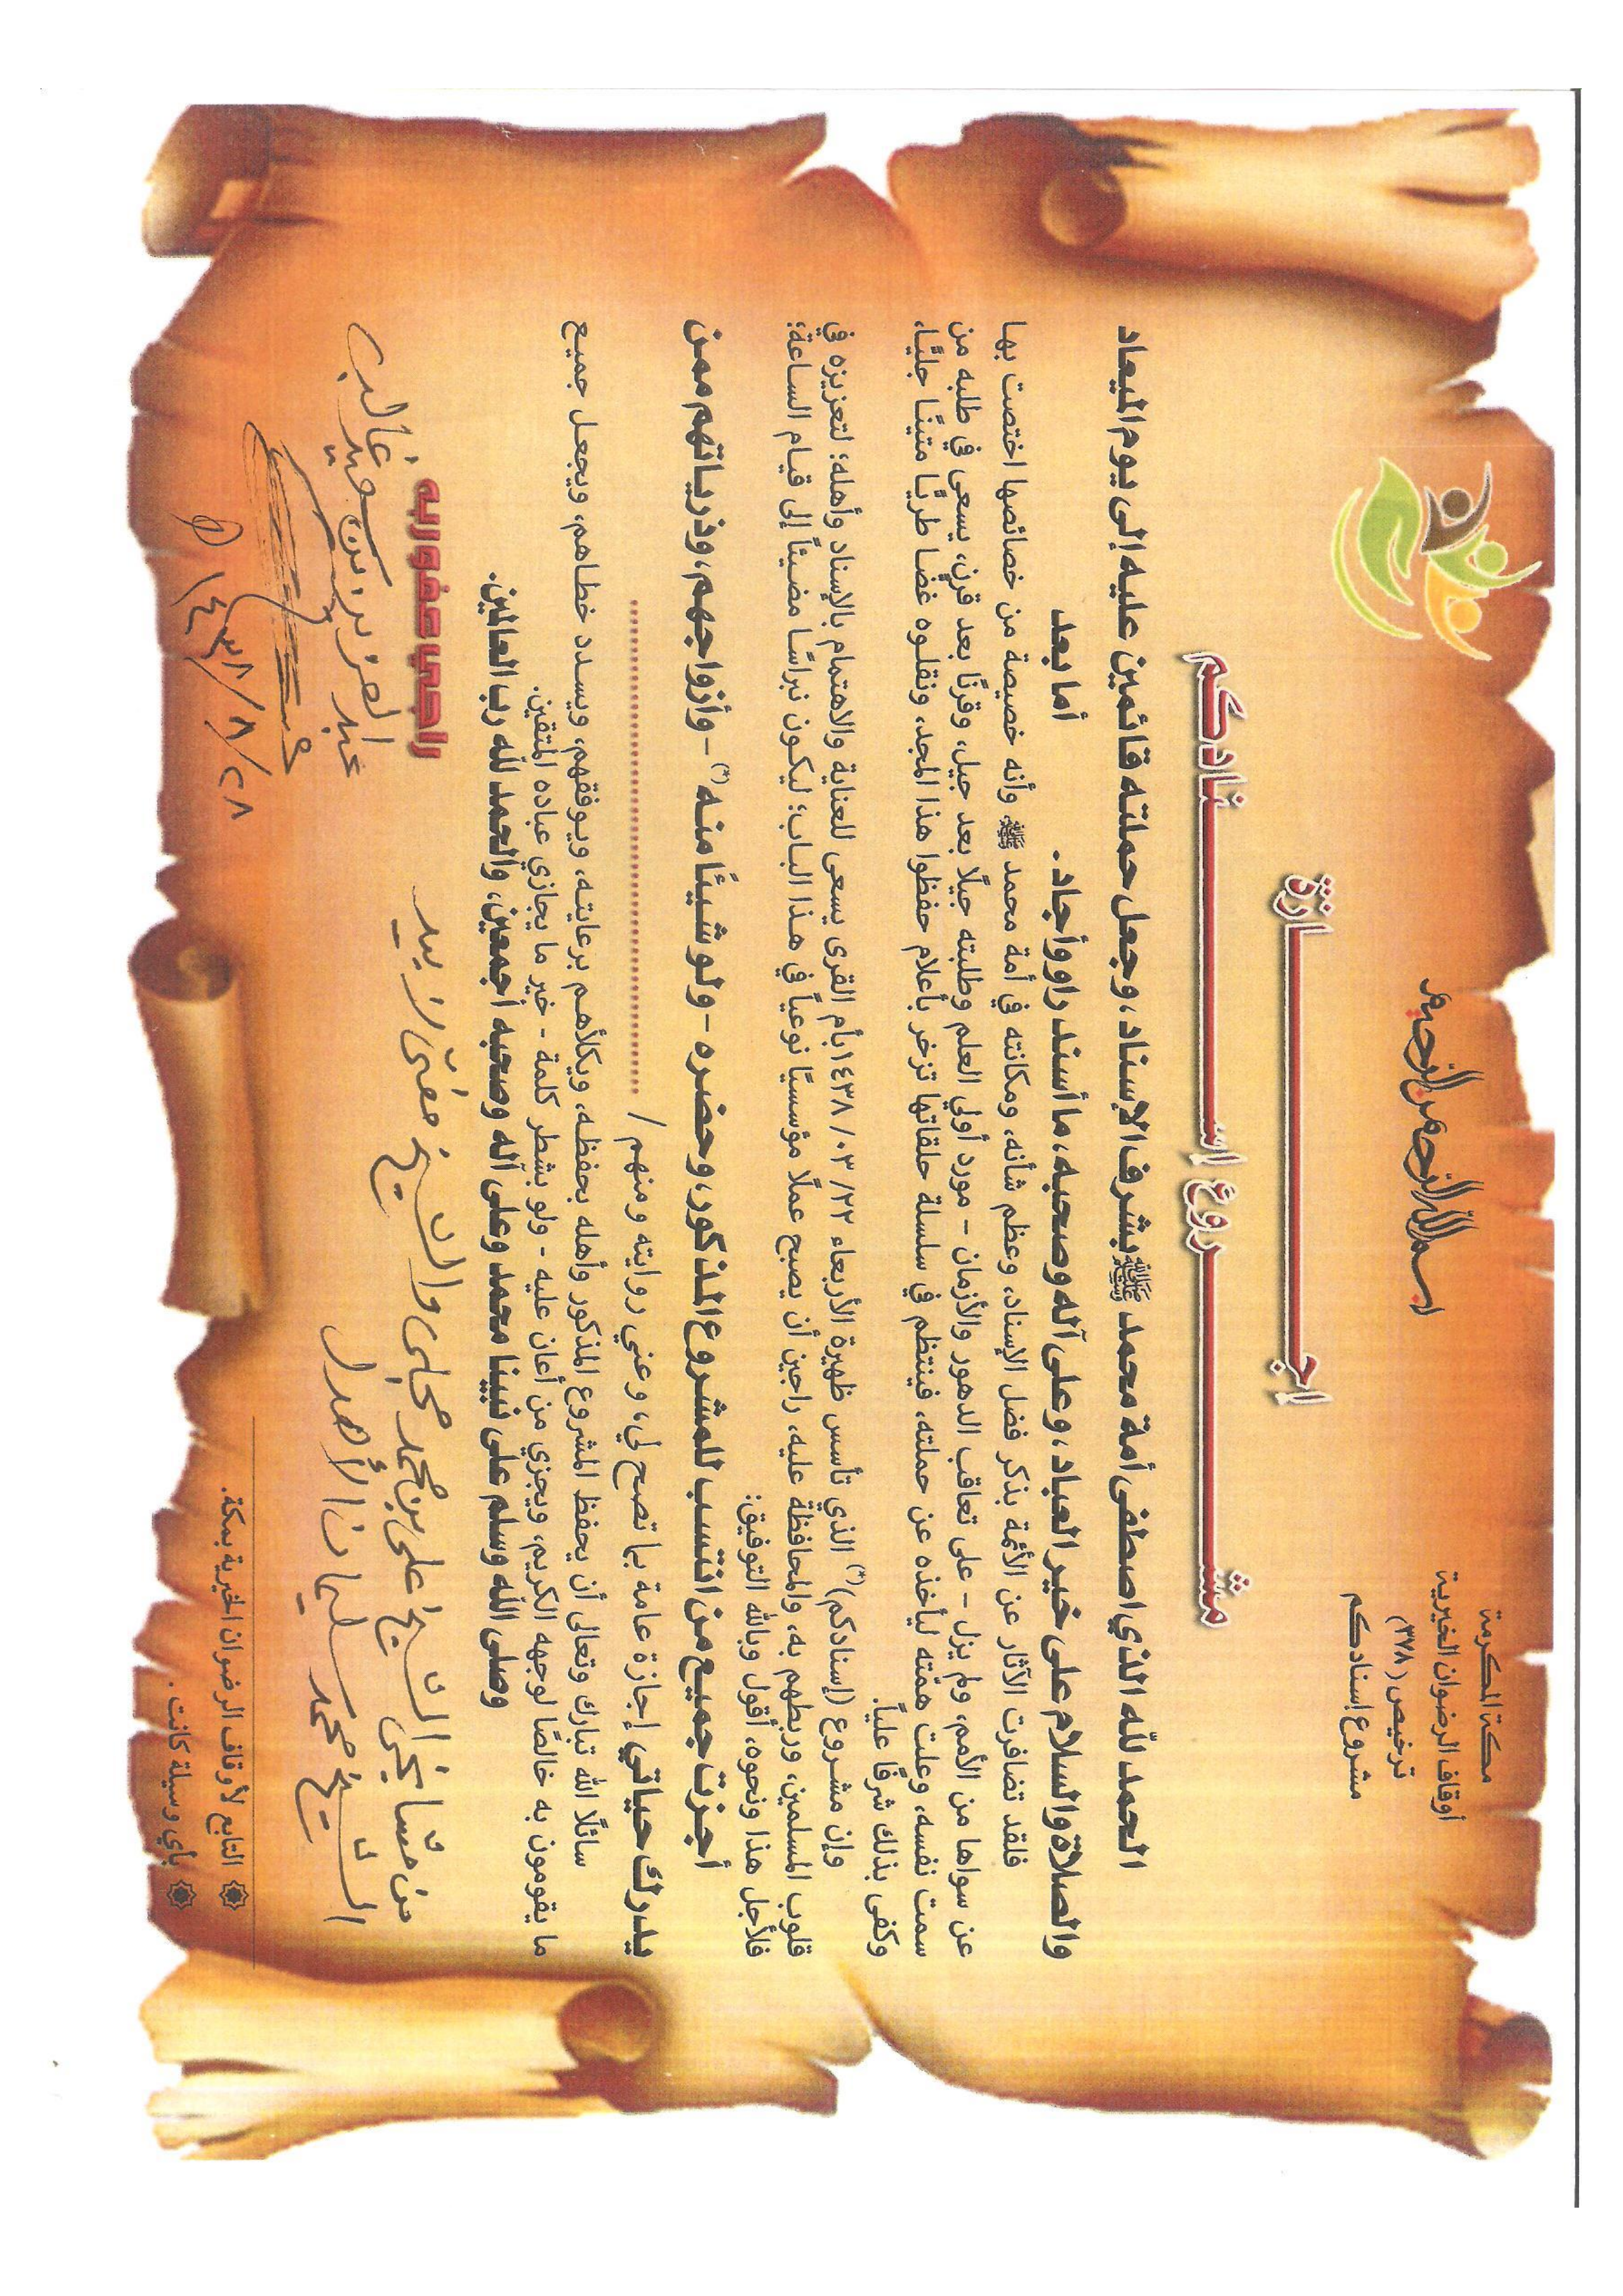 بسم الله الرحمن الرحيم
مكة المكرمة
أوقاف الرضوان الخيرية
ترخيص (٣٧٨)
مشروع إسنادكم
اجـــازة
مشـــروع إسـنادكم
الحمد لله الذي اصطفى أمة محمد ﷺ بشرف الإسناد، وجعل حملته قائمين عليه إلى يوم الميعاد
والصلاة والسلام على خير العباد، وعلى آله وصحبه، ما أسند راو وأجاد. أما بعد
فلقد تضافرت الآثار عن الأئمة بذكر فضل الإسناد، وعظم شأنه، ومكانته في أمة محمد ﷺ وأنه خصيصة من خصائصها اختصت بها
عن سواها من الأمم، ولم يزل - على تعاقب الدهور والأزمان - مورد أولي العلم وطلبته جيلًا بعد جيل، وقرنًا بعد قرن، يسعى في طلبه من
سمت نفسه، وعلت همّته ليأخذه عن حملته، فينتظم في سلسلة حلقاتها تزخر بأعلام حفظوا هذا المجد، ونقلوه غضًا طريًا متينًا جليًا،
وكفى بذلك شرفًا عليًا.
وإن مشروع (إسنادكم)(*) الذي تأسس ظهيرة الأربعاء ٢٢/ ٠٣/ ١٤٣٨ بأم القرى يسعى للعناية والاهتمام بالإسناد وأهله؛ لتعزيزه في
قلوب المسلمين، وربطهم به، والمحافظة عليه، راجين أن يصبح عملًا مؤسسيًا نوعياً في هذا الباب؛ ليكون نبراسًا مضيئاً إلى قيام الساعة؛
فلأجل هذا ونحوه، أقول وبالله التوفيق:
أجزت جميع من انتسب للمشروع المذكور، وحضره - ولو شيئًا منه(*) - وأزواجهم، وذرياتهم ممن
يدرك حياتي إجازة عامة بما تصح لي، وعني روايته ومنهم / ..........................
سائلًا الله تبارك وتعالى أن يحفظ المشروع المذكور وأهله بحفظه، ويكلأهم برعايته، ويوفقهم، ويسدد خطاهم، ويجعل جميع
ما يقومون به خالصًا لوجهه الكريم، ويجزي من أعان عليه - ولو بشطر كلمة - خير ما يجازي عباده المتقين.
وصلى الله وسلم على نبينا محمد وعلى آله وصحبه أجمعين، والحمد لله رب العالمين.
راجي عفو ربه
عبد العزيز بن سويد غالب
١٤٣٨/٨/٢٨ هـ
من مشايخي الشيخ علي بن محمد مجلي والشيخ مفتي زبيد
الشيخ محمد سليمان الأهدل
التابع لأوقاف الرضوان الخيرية بمكة.
بأي وسيلة كانت.